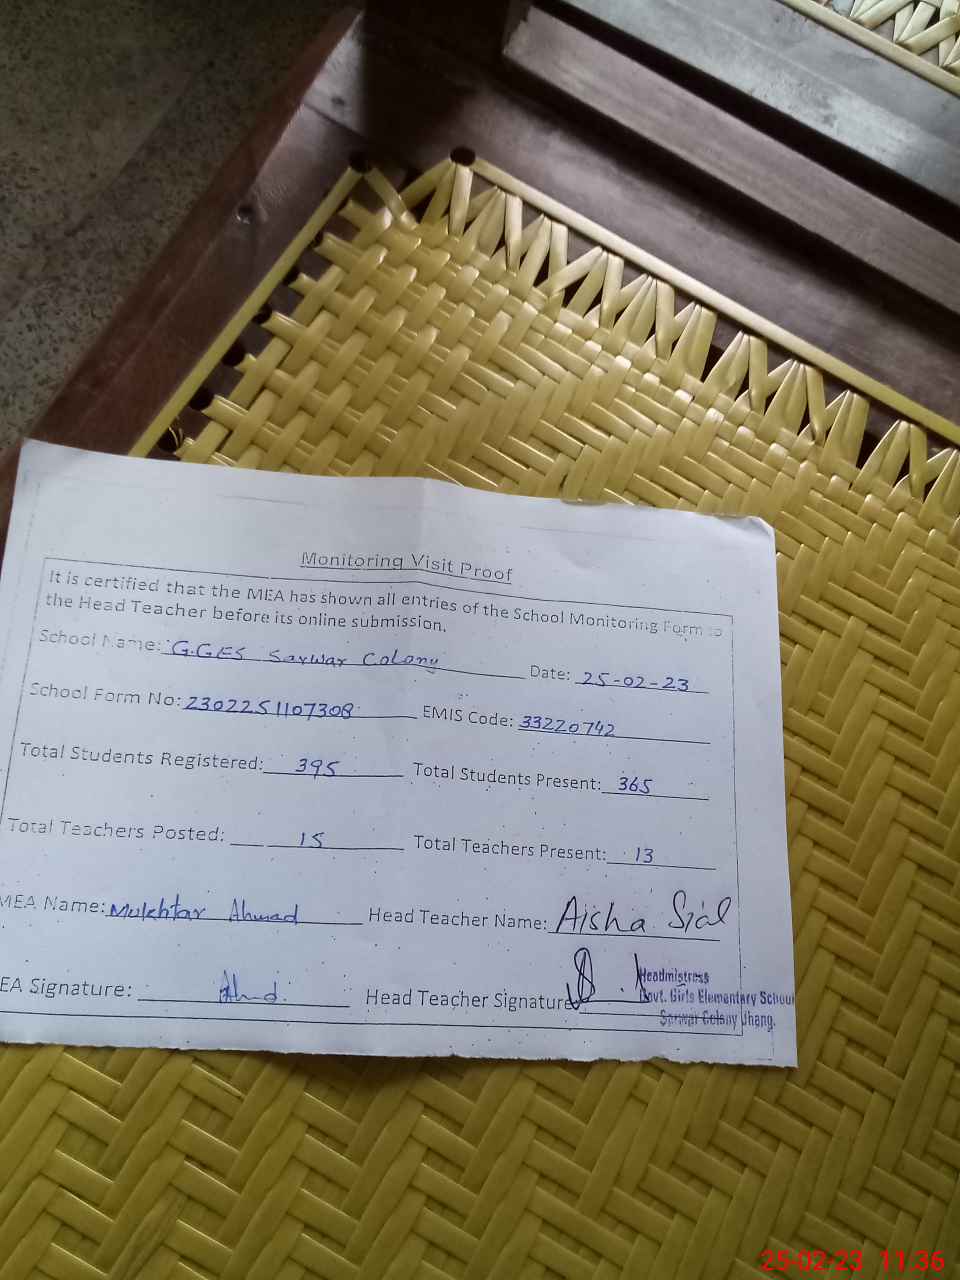 Monitoring Visit Proof
It is certified that the MEA has shown all entries of the School Monitoring Form to
the Head Teacher before its online submission.
School Name: G.GES Sarwar Colony Date: 25-02-23
School Form No: 2302251107308 EMIS Code: 33220742
Total Students Registered: 395 Total Students Present: 365
Total Teachers Posted: 15 Total Teachers Present: 13
MEA Name: Mukhtar Ahmad Head Teacher Name: Aisha Sial
EA Signature: Head Teacher Signature
Headmistress
Govt. Girls Elementary School
Sarwar Colony Jhang.
25-02-23 11:36